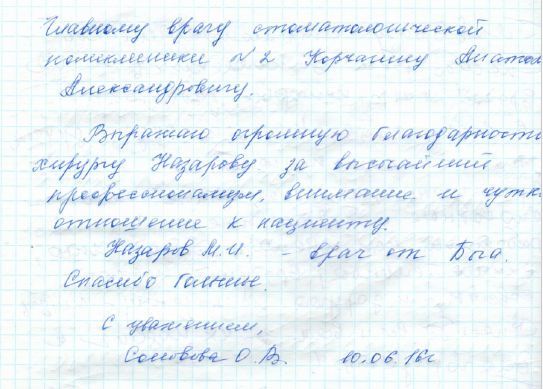 Главному врачу стоматологической
поликлиники №2 Корчагину Анатол
Александровичу.
Выражаю огромную благодарность
хирургу Назарову за высочайший
профессионализм, внимание и чутк
отношение к пациенту.
Назаров М.И. – врач от Бога.
Спасибо большое.
С уважением,
О.В. 10.06.16г